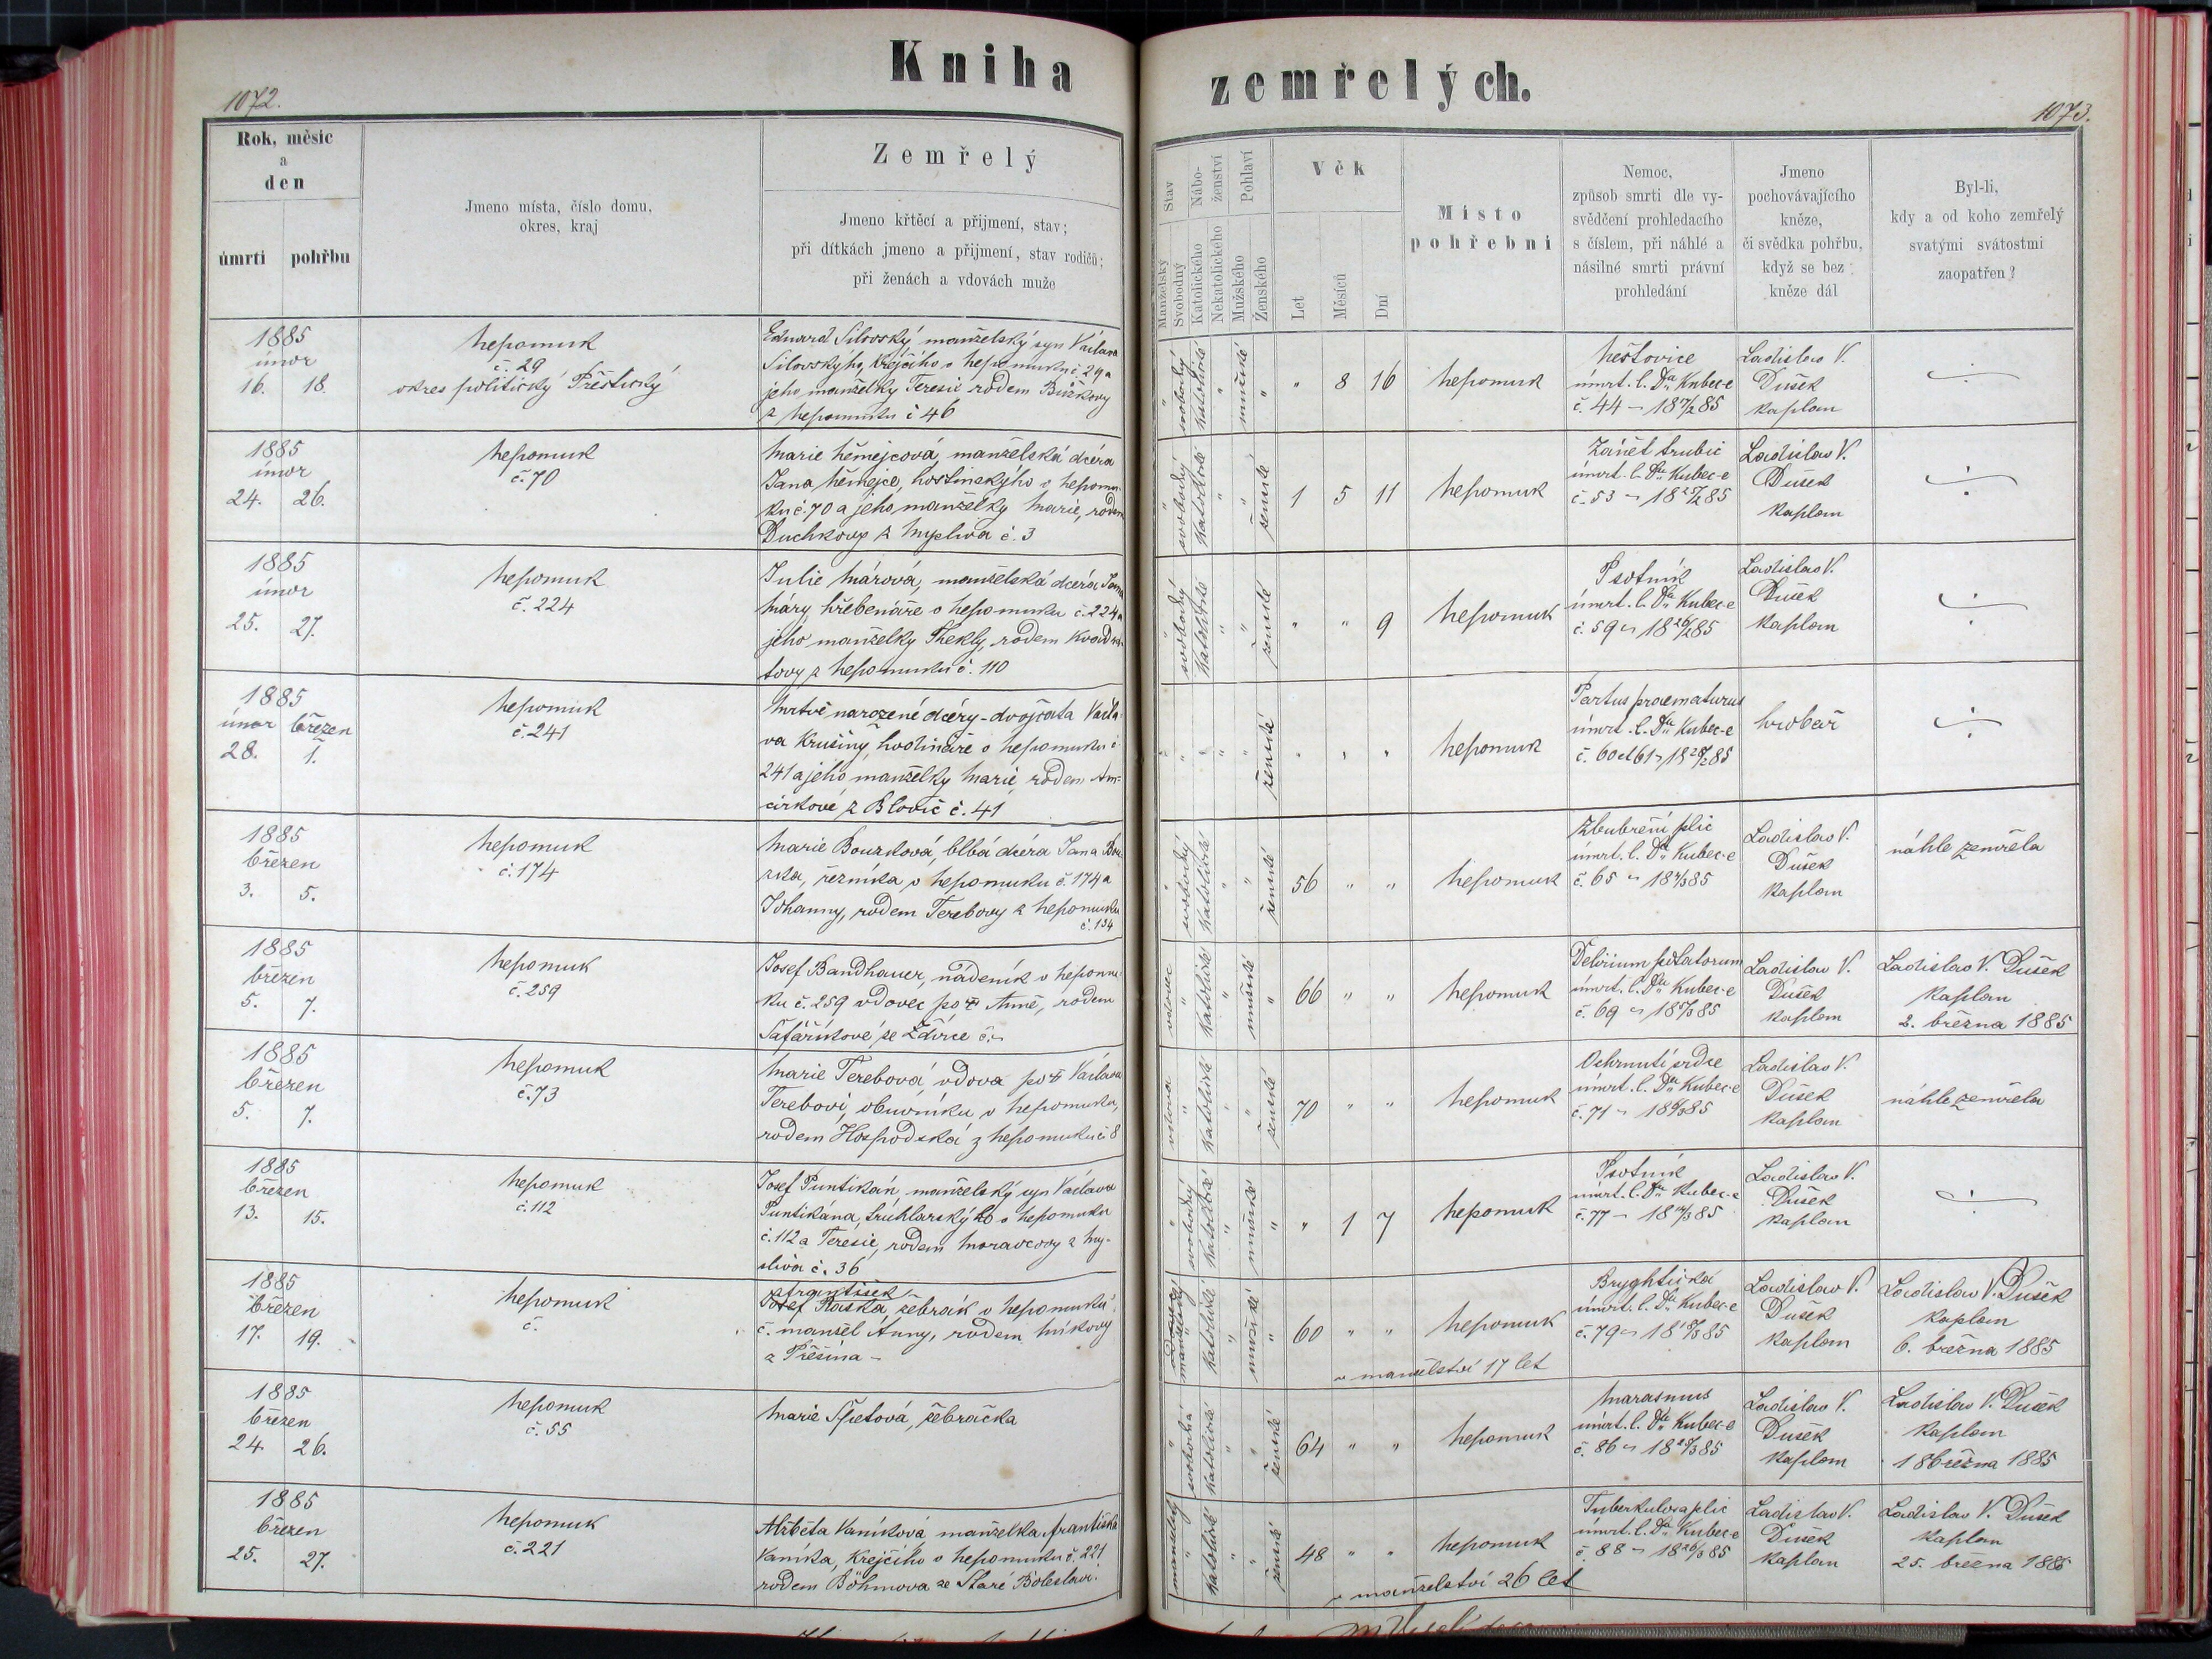 Kniha zemřelých.
1072.
1073.
Rok, měsíc
a
den
úmrtí pohřbu
Jmeno místa, číslo domu,
okres, kraj
Zemřelý
Jmeno křtěcí a přijmení, stav;
při dítkách jmeno a přijmení, stav rodičů;
při ženách a vdovách muže
Stav
Manželský
Svobodný
Nábo-
ženství
Katolického
Nekatolického
Pohlaví
Mužského
Ženského
Věk
Let
Měsíců
Dní
Místo
pohřební
Nemoc,
způsob smrti dle vy-
svědčení prohledacího
s číslem, při náhlé a
násilné smrti právní
prohledání
Jmeno
pochovávajícího
kněze,
či svědka pohřbu,
když se bez
kněze dál
Byl-li,
kdy a od koho zemřelý
svatými svátostmi
zaopatřen?
1885
únor
16. 18.
Nepomuk
č. 29
okres politický Přeštický
Eduard Silovský, manželský syn Václava
Silovskýho, krejčího v Nepomuku č. 29 a
jeho manželky Teresie rodem
z Nepomuku č 46
" svobodný katolické " mužské "
" 8 16
Nepomuk
Neštovice
úmrt. l. Dra Kubec-e
č. 44 – 18 17/2 85
Ladislav V.
Dušek
kaplan
1885
únor
24. 26.
Nepomuk
č. 70
Marie Němejcová, manželská dcéra
Jana Němejce, hostinskýho v Nepomu-
ku č. 70 a jeho manželky Marie, rodem
Duchkovy z Myslíva č. 3
" svobodný katolické " " ženské
1 5 11
Nepomuk
Zánět trubic
úmrt. l. Dra Kubec-e
č. 53 – 18 25/2 85
Ladislav V.
Dušek
kaplan
1885
únor
25. 27.
Nepomuk
č. 224
Julie Márová, manželská dcéra Jana
Máry, hřebenáře v Nepomuku č. 224 a
jeho manželky Thekly, rodem
tovy z Nepomuku č. 110
" svobodný katolické " " ženské
" " 9
Nepomuk
Psotník
úmrt. l. Dra Kubec-e
č. 59 – 18 26/2 85
Ladislav V.
Dušek
kaplan
1885
únor březen
28. 1.
Nepomuk
č. 241
Mrtvě narozené dcéry-dvojčata Václa-
va Krušiny, hodináře v Nepomuku č
241 a jeho manželky Marie, rodem
z Blovic č. 41
" " " " " ženské
" " "
Nepomuk
Partus praematurus
úmrt. l. Dra Kubec-e
č. 60 et 61 – 18 28/2 85
hrobař
1885
březen
3. 5.
Nepomuk
č. 174
Marie Bouzková, blbá dcéra Jana Bou-
zka, řezníka v Nepomuku č. 174 a
Johanny, rodem Terebovy z Nepomuku
č. 134
" svobodný katolické " " ženské
56 " "
Nepomuk
Zbubření plic
úmrt. l. Dra Kubec-e
č. 65 – 18 4/3 85
Ladislav V.
Dušek
kaplan
náhle zemřela
1885
březen
5. 7.
Nepomuk
č. 259
Josef Bandhauer, nádeník v Nepomu-
ku č. 259 vdovec po † Anně, rodem
Šafaříkové, ze Ždírce č. –
vdovec " katolické " mužské "
66 " "
Nepomuk
Delirium potatorum
úmrt. l. Dra Kubec-e
č. 69 – 18 5/3 85
Ladislav V.
Dušek
kaplan
Ladislav V. Dušek
kaplan
2. března 1885
1885
březen
5. 7.
Nepomuk
č. 73
Marie Terebová, vdova po † Václavu
Terebovi, obuvníku v Nepomuku,
rodem Hospodská z Nepomuku č 8
vdova " katolické " " ženské
70 " "
Nepomuk
Ochrnutí srdce
úmrt. l. Dra Kubec-e
č. 71 – 18 6/3 85
Ladislav V.
Dušek
kaplan
náhle zemřela
1885
březen
13. 15.
Nepomuk
č. 112
Josef Puntikán, manželský syn Václava
Puntikána, truhlarskýho v Nepomuku
č. 112 a Teresie, rodem Moravcovy z My-
slíva č. 36
" svobodný katolické " mužské "
" 1 7
Nepomuk
Psotník
úmrt. l. Dra Kubec-e
č. 77 – 18 14/3 85
Ladislav V.
Dušek
kaplan
1885
březen
17. 19.
Nepomuk
č.
František
Josef Raška, žebrák v Nepomuku
č. manžel Anny, rodem Míkovy
z Přešína –
manželský " katolické " mužské "
60 " "
v manželství 17 let
Nepomuk
Bryghtická
úmrt. l. Dra Kubec-e
č. 79 – 18 18/3 85
Ladislav V.
Dušek
kaplan
Ladislav V. Dušek
kaplan
6. března 1885
1885
březen
24. 26.
Nepomuk
č. 55
Marie Špetová, žebračka
" svobodná katolické " " ženské
64 " "
Nepomuk
Marasmus
úmrt. l. Dra Kubec-e
č. 86 – 18 25/3 85
Ladislav V.
Dušek
kaplan
Ladislav V. Dušek
kaplan
18 března 1885
1885
březen
25. 27.
Nepomuk
č. 221
Alžběta Vaníková, manželka Františka
Vaníka, krejčího v Nepomuku č. 221
rodem Böhmova ze Staré Boleslavi.
manželský " katolické " " ženské
48 " "
v manželství 26 let
Nepomuk
Tuberkulosa plic
úmrt. l. Dra Kubec-e
č 88 – 18 26/3 85
Ladislav V.
Dušek
kaplan
Ladislav V. Dušek
kaplan
25. března 1885